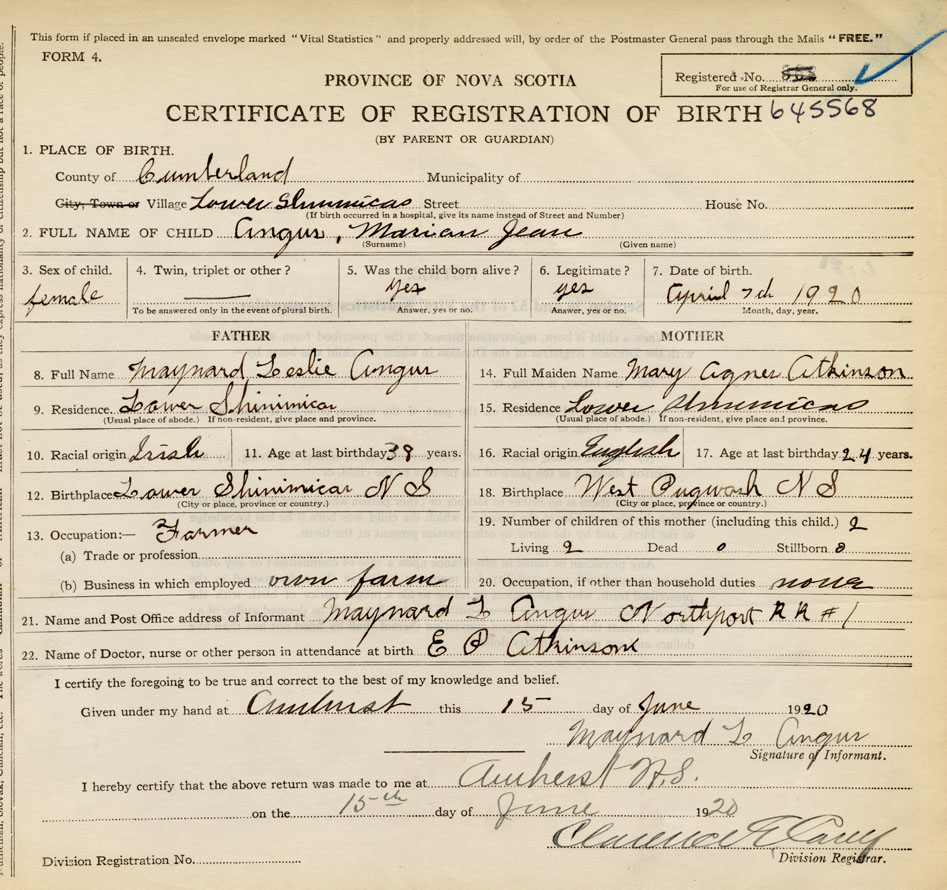 This form if placed in an unsealed envelope marked "Vital Statistics" and properly addressed will, by order of the Postmaster General pass through the Mails "FREE."
FORM 4.
PROVINCE OF NOVA SCOTIA
Registered No.
For use of Registrar General only.
CERTIFICATE OF REGISTRATION OF BIRTH 645568
(BY PARENT OR GUARDIAN)
1. PLACE OF BIRTH.
County of Cumberland Municipality of
City, Town or Village Lower Shinimicas Street House No.
(If birth occurred in a hospital, give its name instead of Street and Number)
2. FULL NAME OF CHILD Angus, Marian Jean
(Surname) (Given name)
3. Sex of child. 4. Twin, triplet or other? 5. Was the child born alive? 6. Legitimate? 7. Date of birth.
female yes yes April 7th 1920
To be answered only in the event of plural birth. Answer, yes or no. Answer, yes or no. Month, day, year.
FATHER MOTHER
8. Full Name Maynard Leslie Angus 14. Full Maiden Name Mary Agnes Atkinson
9. Residence. Lower Shinimicas 15. Residence Lower Shinimicas
(Usual place of abode.) If non-resident, give place and province. (Usual place of abode.) If non-resident, give place and province.
10. Racial origin Irish 11. Age at last birthday 38 years. 16. Racial origin English 17. Age at last birthday 24 years.
12. Birthplace Lower Shinimicas N S 18. Birthplace West Pugwash N S
(City or place, province or country.) (City or place, province or country.)
13. Occupation:— Farmer 19. Number of children of this mother (including this child.) 2
(a) Trade or profession Living 2 Dead 0 Stillborn 0
(b) Business in which employed own farm 20. Occupation, if other than household duties none
21. Name and Post Office address of Informant Maynard L Angus Northport R R #1
22. Name of Doctor, nurse or other person in attendance at birth E P Atkinson
I certify the foregoing to be true and correct to the best of my knowledge and belief.
Given under my hand at Amherst this 15 day of June 1920
Maynard L Angus
Signature of Informant.
I hereby certify that the above return was made to me at Amherst N.S.
on the 15th day of June 1920
Clarence E Carey
Division Registration No. Division Registrar.